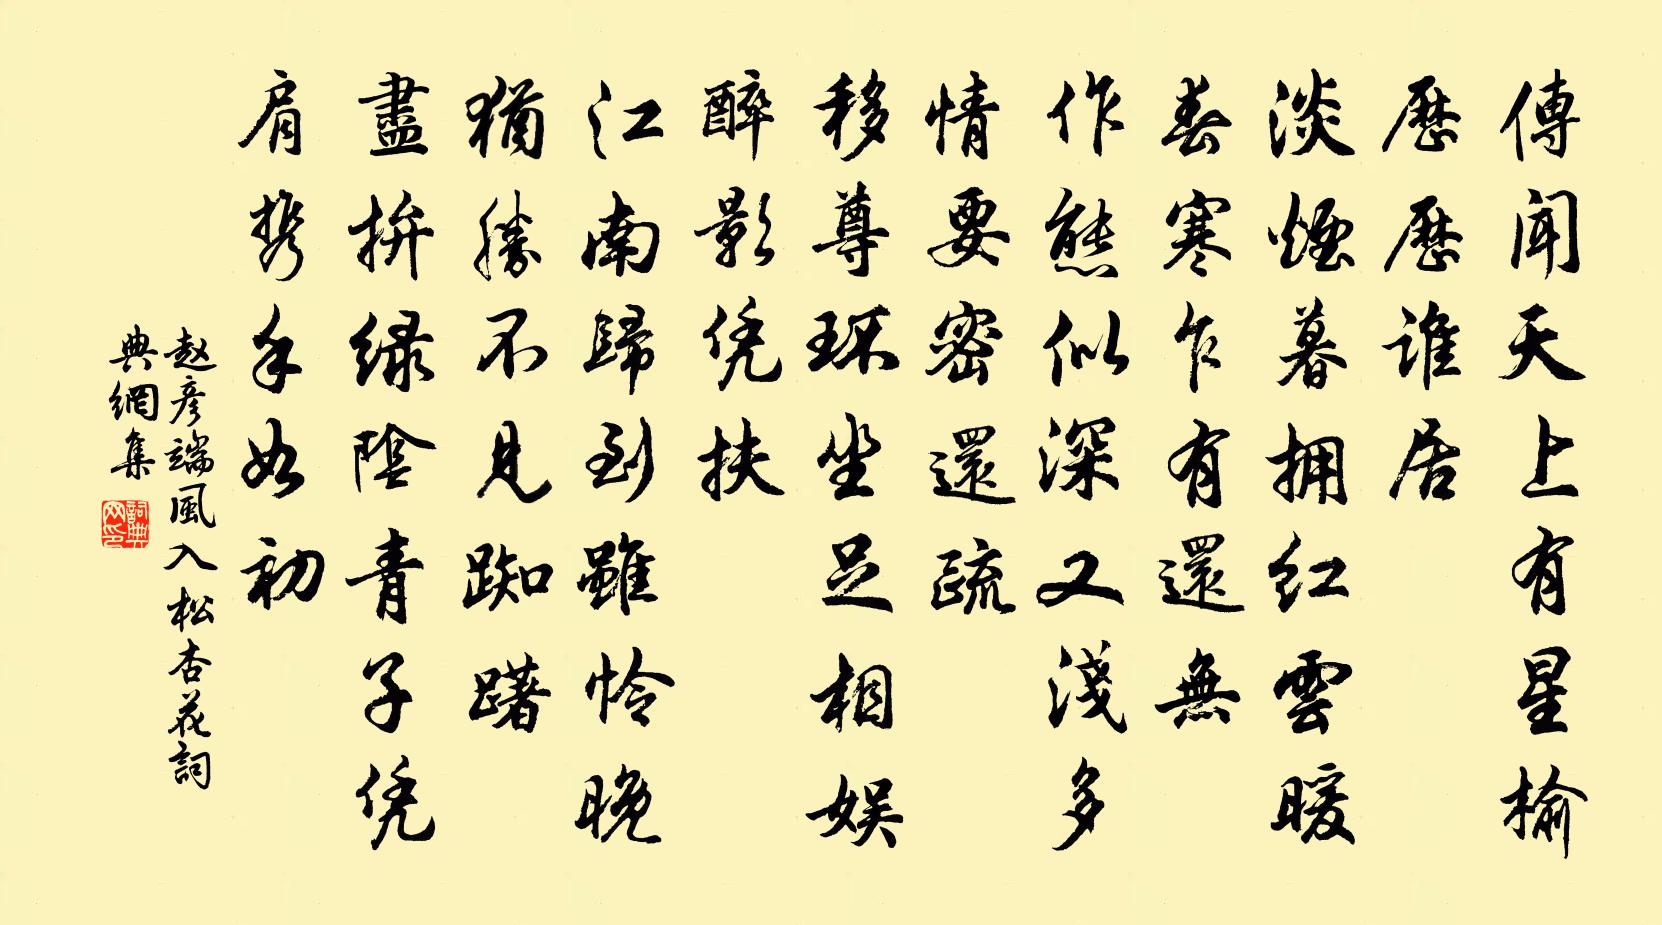 傳聞天上有星榆
歷歷誰居
淡煙暮擁紅雲暖
春寒乍有還無
作態似深又淺多
情要密還疏
移尊環坐足相娛
醉影凭扶
江南歸到雖憐晚
猶勝不見踟躇
盡拚綠陰青子凭
肩携手如初
赵彥端風入松杏花詞
典網集
詞典網印